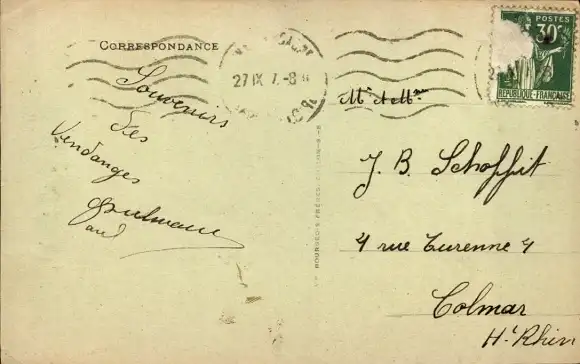 CORRESPONDANCE
Souvenirs
des
Vendanges
27 IX 7.-8
POSTES
30
REPUBLIQUE-FRANÇAISE
Mr et Mme
J. B. Schoffit
4 rue Turenne 4
Colmar
Ht Rhin